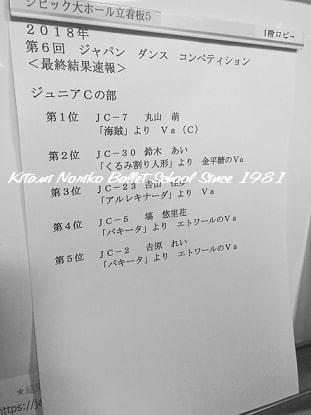 シビック大ホール立看板5
1階ロビー
2018年
第6回 ジャパン ダンス コンペティション
<最終結果速報>
ジュニアCの部
第1位 JC-7 丸山 萌
「海賊」より Va(C)
第2位 JC-30 鈴木 あい
「くるみ割り人形」より 金平糖のVa
Kitami Noriko Ballet School Since 1981
第3位 JC-23 吉山
「アルレキナーダ」より Va
第4位 JC-5 塙 悠里花
「パキータ」より エトワールのVa
第5位 JC-2 吉原 れい
「パキータ」より エトワールのVa
https://j